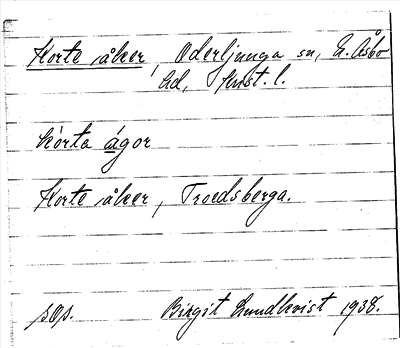 Korte åker, Oderljunga sn, N. Åsbo
hd, Krist. l.
kòrta ágor
Korte åker, Troedsberga.
sOp. Birgit Lundkvist 1938.